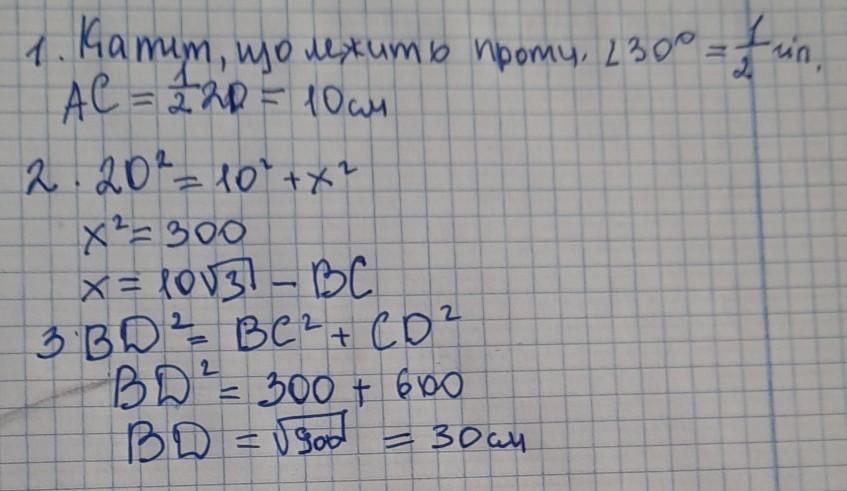 1. Катет, що лежить проти. ∠30° = 1/2 гіп.
AC = 1/2 20 = 10см
2. 20² = 10² + x²
x² = 300
x = 10√3 - BC
3. BD² = BC² + CD²
BD² = 300 + 600
BD = √900 = 30см